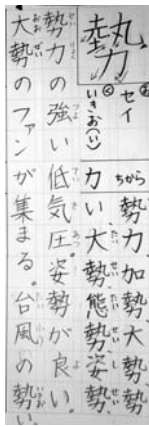 勢
セイ
いきお(い)
力 ちから
勢力、加勢、大勢、
い大勢、態勢、姿勢、
勢力の強い低気圧。姿勢が良い。
大勢のファンが集まる。台風の勢い。